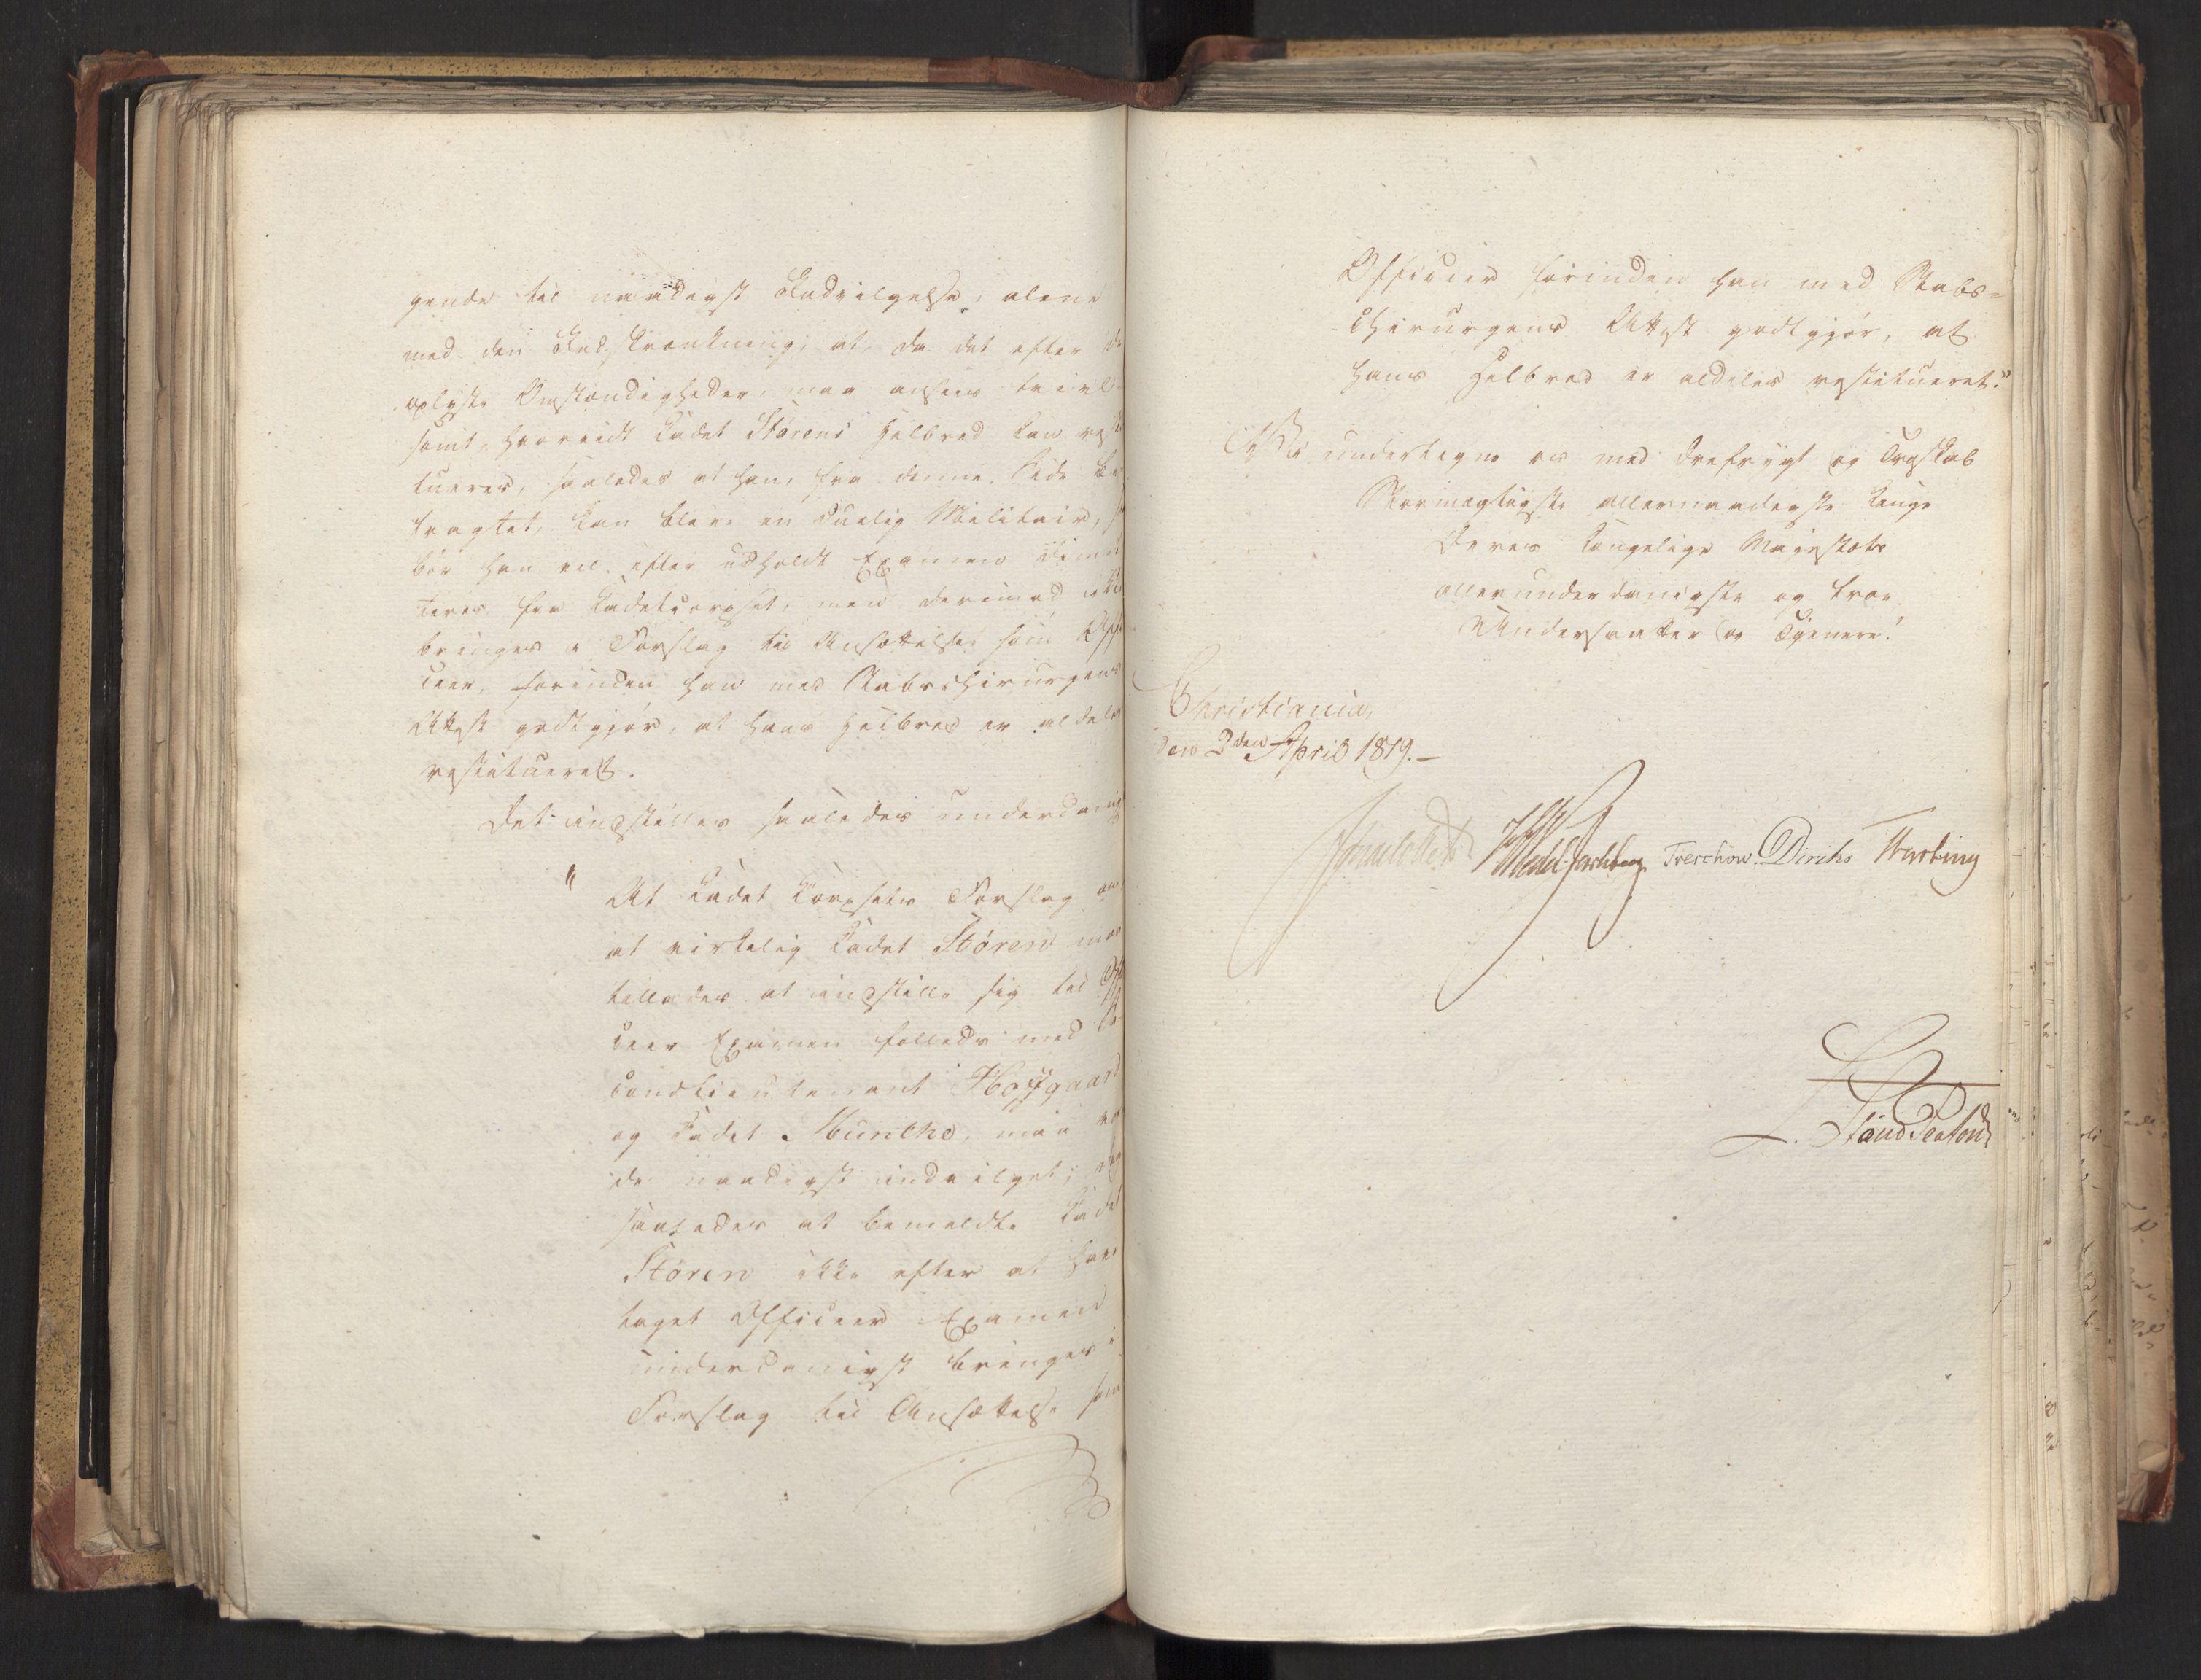 gende til naadigst Indvilgelse, alene
med den Indskrænkning, at da det efter de
oplyste Omstændigheder, maa ansees tvivl-
somt, hvorvidt Cadet Størens Helbred kan resti
tueres, saaledes at han, fra denne Side be
tragtet, kan blive en duelig Militair,
bør han vel efter udholdt Examen dimit
teres fra Cadetcorpset, men derimod ikke
bringes i Forslag til Ansættelse som Offi
ceer, forinden han med Stabschirurgens
Attest godtgjør, at hans Helbred er aldeles
restitueret.
Det indstilles saaledes underdanigst
" At Cadet Corpsets Forslag om
at virkelig Cadet Støren maa
tillades at indstille sig til Offi
ceer Examen fælleds med Se-
condlieutenant Hoffgaard
og Cadet Münthe, maa vor
de naadigst indvilget, dog
saaledes at bemeldte Cadet
Støren ikke efter at have
taget Officeer Examen
underdanigst bringes i
Forslag til Ansættelse som
Officeer forinden han med Stabs-
Chirurgens Attest godtgjør, at
hans Helbred er aldeles restitueret."
Vi undertegne os med Ærefrygt og Troskab
Stormægtigste Allernaadigste Konge
Deres Kongelige Majestæts
allerunderdanigste og troe
Undersaatter og Tjenere!
Christiania,
den 2den April 1819.-
Treschow Diriks Hwebing